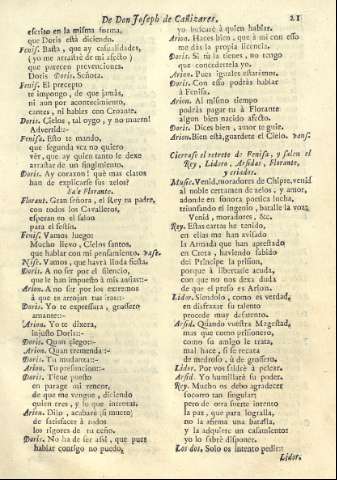 De Don Joseph de Cañizares. 21
escriso en la misma forma,
que Doris está diciendo.
Fenis. Basta, que ay casualidades,
(yo me arrastré de mi afecto)
que parecen prevenciones.
Doris. Doris. Señora.
Fenis. El precepto
te impongo, de que jamás,
ni aun por acontecimiento,
cantes, ni hables con Creonte.
Doris. Cielos, tal oygo, y no muero!
Advertid:-
Fenisa. Esto te mando,
que segunda vez no quiero
vér, que ay quien tanto le dexe
arrastrar de un fingimiento.
Doris. Ay corazon! què mas claros
han de explicarse sus zelos?
Sale Florante.
Florant. Gran señora, el Rey tu padre,
con todos los Cavalleros,
esperan en el salòn
para el festin.
Fenis. Vamos luego:
Mucho llevo, Cielos santos,
que hablar con mi pensamiento. vase.
Nise. Vamos, que havrà linda fiesta.
Doris. A no ser por el silencio,
que le han impuesto à mis ansias:-
Arion. A no ser por los extremos
à que te arrojan tus iras:-
Doris. Yo te expressára, grossero
amante:-
Arion. Yo te dixera,
injusto Doris:-
Doris. Quan ciego:-
Arion. Quan tremenda:-
Doris. Tu mudanza:-
Arion. Tu presuncion:-
Doris. Tiene puesto
en parage mi rencor,
de que me vengue, diciendo
quien eres, y lo que intentas.
Arion. Dilo, acabaré si muero
de satisfacer à todos
los rigores de tu ceño.
Doris. No ha de ser assi, que pues
hablar contigo no puedo,
yo buscaré à quien hablar.
Arion. Haces bien, que à mi con esso
me dàs la propia licencia.
Doris. Si tu la tienes, no tengo
que concedertela yo.
Arion. Pues iguales estarémos.
Doris. Con esso podràs hablar
à Fenisa.
Arion. Al mismo tiempo
podràs pagar tu à Florante
algun bien nacido afecto.
Doris. Dices bien, amor te guie.
Arion. Bien està, guardete el Cielo. vans.
Cierrase el retrete de Fenisa, y salen el
Rey, Lidoro, Arsidas, Florante,
y criados.
Music. Venid, moradores de Chipre, venid
al noble certamen de zelos, y amor,
adonde en sonora poetica lucha,
triunfando el ingenio, batalle la voz.
Venid, moradores, &c.
Rey. Estas cartas he tenido,
en ellas me han avisado
la Armada que han aprestado
en Creta, haviendo sabido
del Principe la prision,
porque à libertarle acuda,
con que no nos dexa duda
de que el preso es Arion.
Lidor. Siendolo, como es verdad,
en disfrazar su talento
procede muy desatento.
Arsid. Quando vuestra Magestad,
mas que como prisionero,
como su amigo le trata,
mal hace, si se recata
de medroso, ù de grossero.
Lidor. Por vos saldré à pelear.
Arsid. Yo humillaré su poder.
Rey. Mucho os debo agradecer
socorro tan singular;
pero de otra suerte intento
la paz, que para lograrla,
no la afirma una batalla,
y la adquiere un casamiento:
yo lo sabré disponer.
Los dos. Solo os intento pedir:
Lidor.